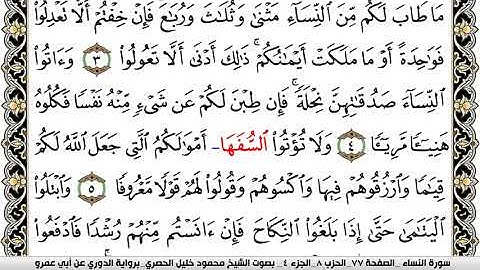 مَا طَابَ لَكُم مِّنَ ٱلنِّسَآءِ مَثْنَىٰ وَثُلَٰثَ وَرُبَٰعَ فَإِنْ خِفْتُمُ أَلَّا تَعْدِلُوا۟
فَوَٰحِدَةً أَوْ مَا مَلَكَتْ أَيْمَٰنُكُمْ ۚ ذَٰلِكَ أَدْنَىٰ أَلَّا تَعُولُوا۟ ٣ وَءَاتُوا۟
ٱلنِّسَآءَ صَدُقَٰتِهِنَّ نِحْلَةً ۚ فَإِن طِبْنَ لَكُمْ عَن شَىْءٍ مِّنْهُ نَفْسًا فَكُلُوهُ
هَنِيٓـًٔا مَّرِيٓـًٔا ٤ وَلَا تُؤْتُوا۟ ٱلسُّفَهَا- أَمْوَٰلَكُمُ ٱلَّتِى جَعَلَ ٱللَّهُ لَكُمْ
قِيَٰمًا وَٱرْزُقُوهُمْ فِيهَا وَٱكْسُوهُمْ وَقُولُوا۟ لَهُمْ قَوْلًا مَّعْرُوفًا ٥ وَٱبْتَلُوا۟
ٱلْيَتَٰمَىٰ حَتَّىٰٓ إِذَا بَلَغُوا۟ ٱلنِّكَاحَ فَإِنْ ءَانَسْتُم مِّنْهُمْ رُشْدًا فَٱدْفَعُوٓا۟
سورة النساء_الصفحة ٧٧_الحزب ٨_الجزء ٤_ بصوت الشيخ محمود خليل الحصري_برواية الدوري عن أبي عمرو